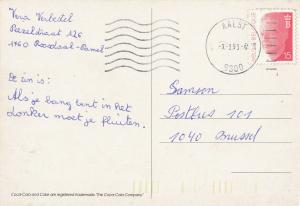 Vera Verledel
Pezeldraat 126
1760 Roosdaal-Pamel
De zin is:
Als je bang bent in het
donker moet je fluiten.
AALST
9300
15
Samson
Postbus 101
1040 Brussel
Coca-Cola and Coke are registered trademarks "The Coca-Cola Company"